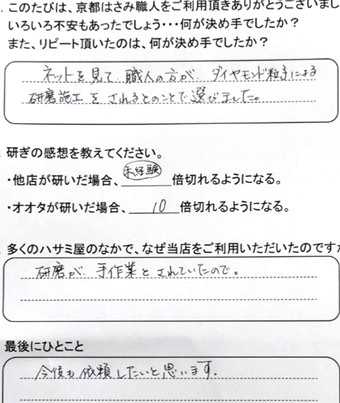 .このたびは、京都はさみ職人をご利用頂きありがとうございまし
いろいろ不安もあったでしょう・・・何が決め手でしたか？
また、リピート頂いたのは、何が決め手でしたか？
ネットを見て 職人の方が、ダイヤモンド粒子による
研磨施工をされるとのことで選びました。
．研ぎの感想を教えてください。
・他店が研いだ場合、未経験倍切れるようになる。
・オオタが研いだ場合、10倍切れるようになる。
．多くのハサミ屋のなかで、なぜ当店をご利用いただいたのですか
研磨が手作業とされていたので。
最後にひとこと
今後も依頼したいと思います.